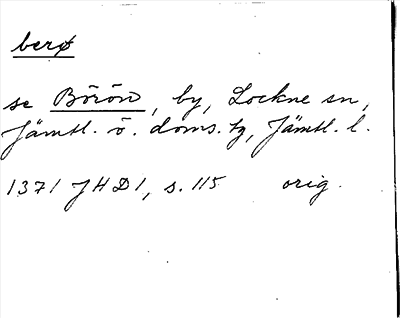 berø
se Börön, by, Lockne sn,
Jämtl. ö. doms. tg, Jämtl. l.
1371 JHD1, s. 115 orig.